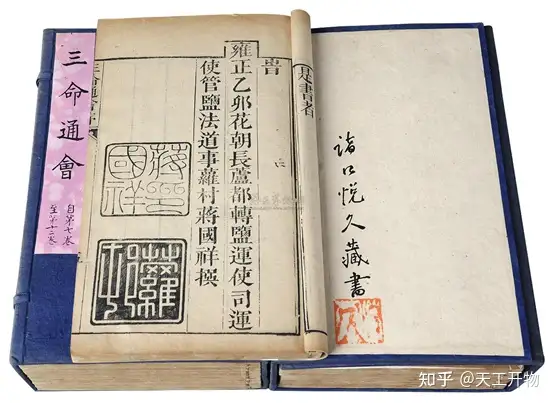 三命通會
自第七卷
至第十二卷
雍正乙卯花朝長蘆都轉鹽運使司運
使管鹽法道事蘿村蔣國祥撰
蔣國祥印
蘿村
是書者
悅久藏書
知乎 @天工开物